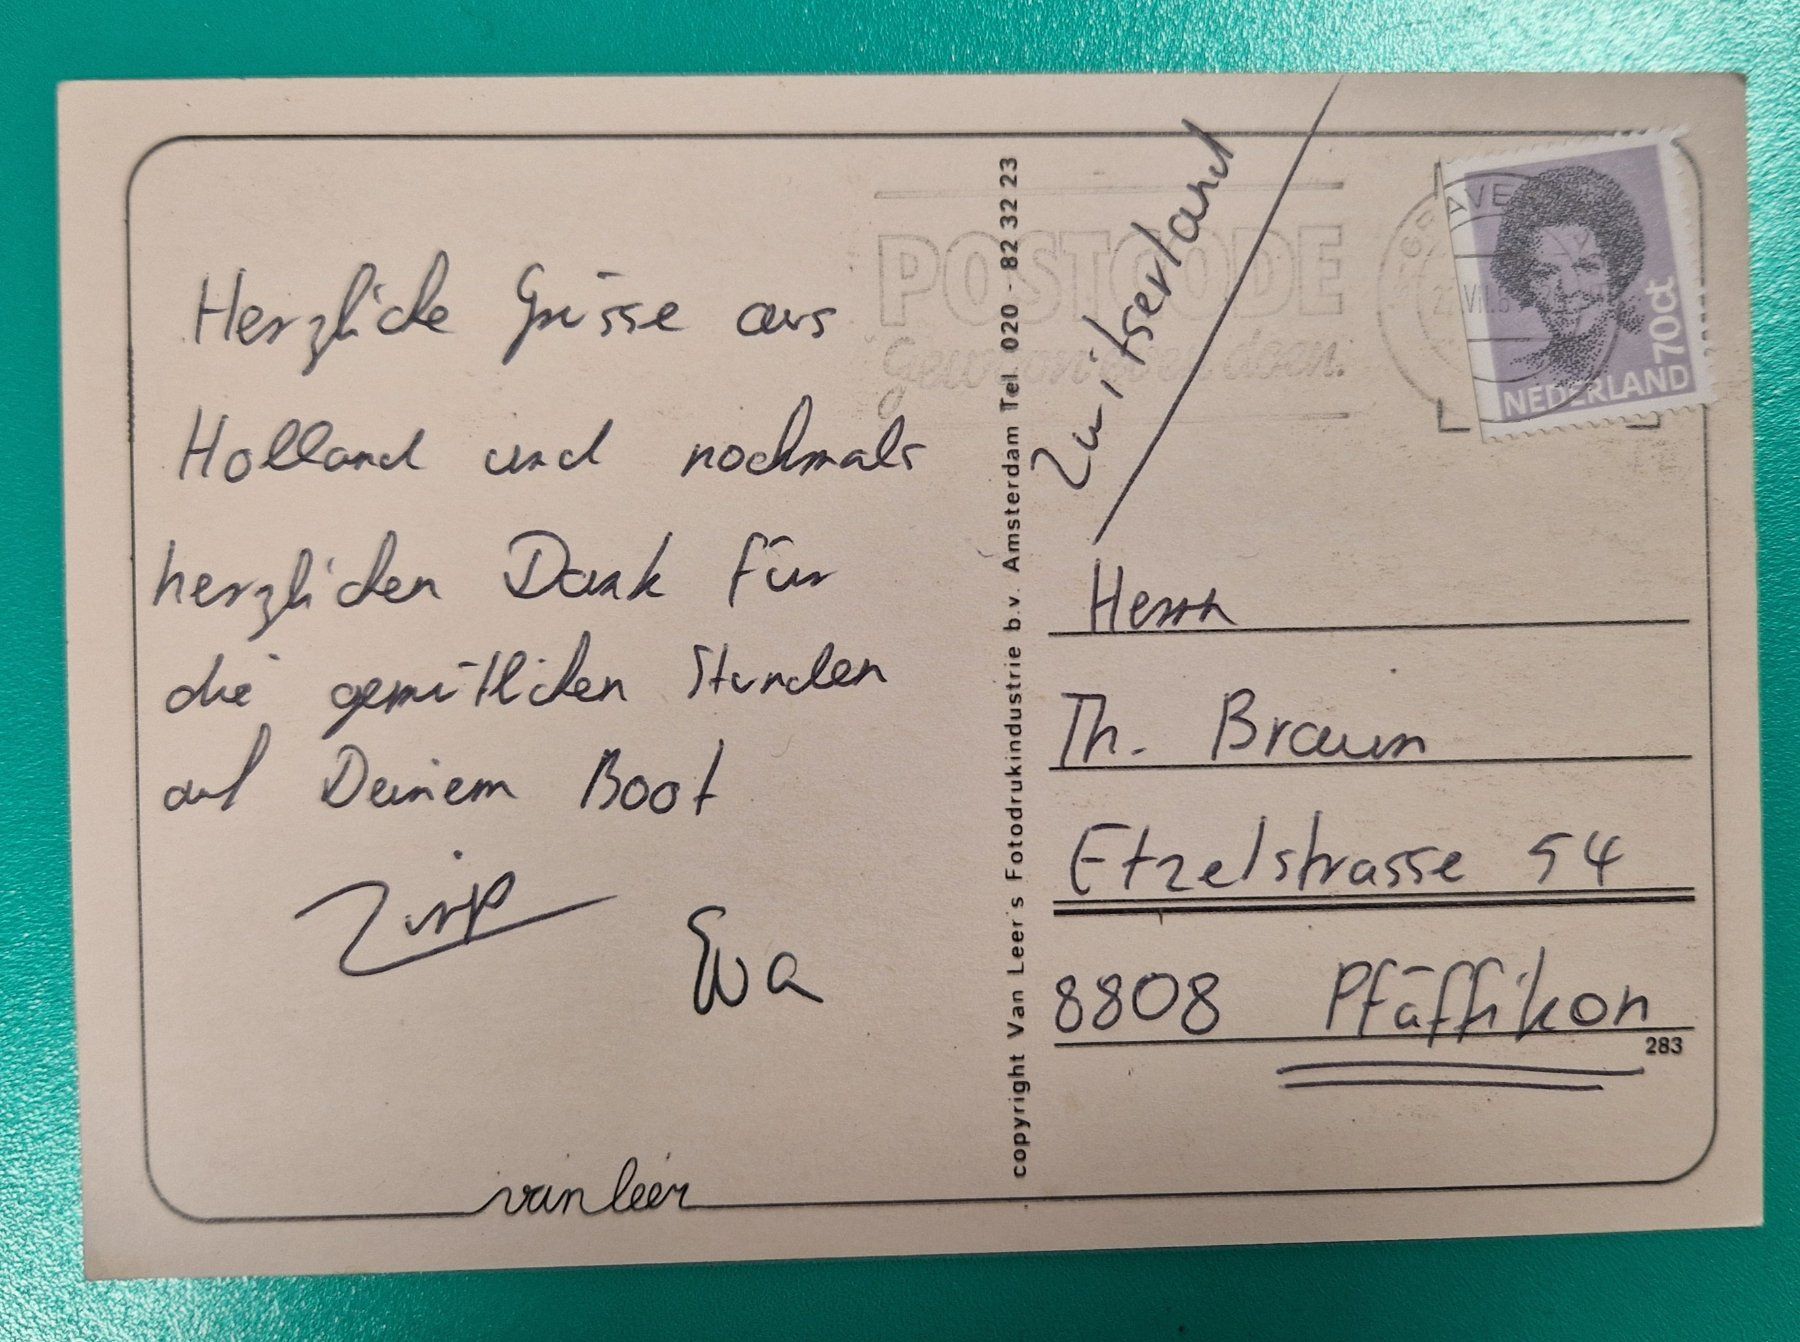 Herzliche Grüsse aus
Holland und nochmals
herzlichen Dank für
die gemütlichen Stunden
auf Deinem Boot
Eva
van leer
copyright Van Leer's Fotodrukindustrie b.v. Amsterdam Tel. 020 - 82 32 23
POSTCODE
Gewoon doen.
Zwitserland
70ct
NEDERLAND
Herrn
Th. Braun
Etzelstrasse 54
8808 Pfäffikon
283